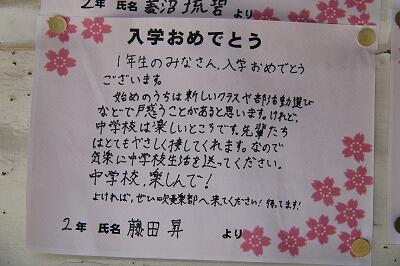 2年 氏名 菱沼 琉碧 より
入学おめでとう
1年生のみなさん、入学おめでとう
ございます。
始めのうちは新しいクラスや部活動選び
などで戸惑うことがあると思います。けれど、
中学校は楽しいところです。先輩たち
はとてもやさしく接してくれます。なので
気楽に中学校生活を送ってください。
中学校、楽しんで!
よければ、ぜひ吹奏楽部へ来てください!待ってます!
2年 氏名 藤田 昇 より